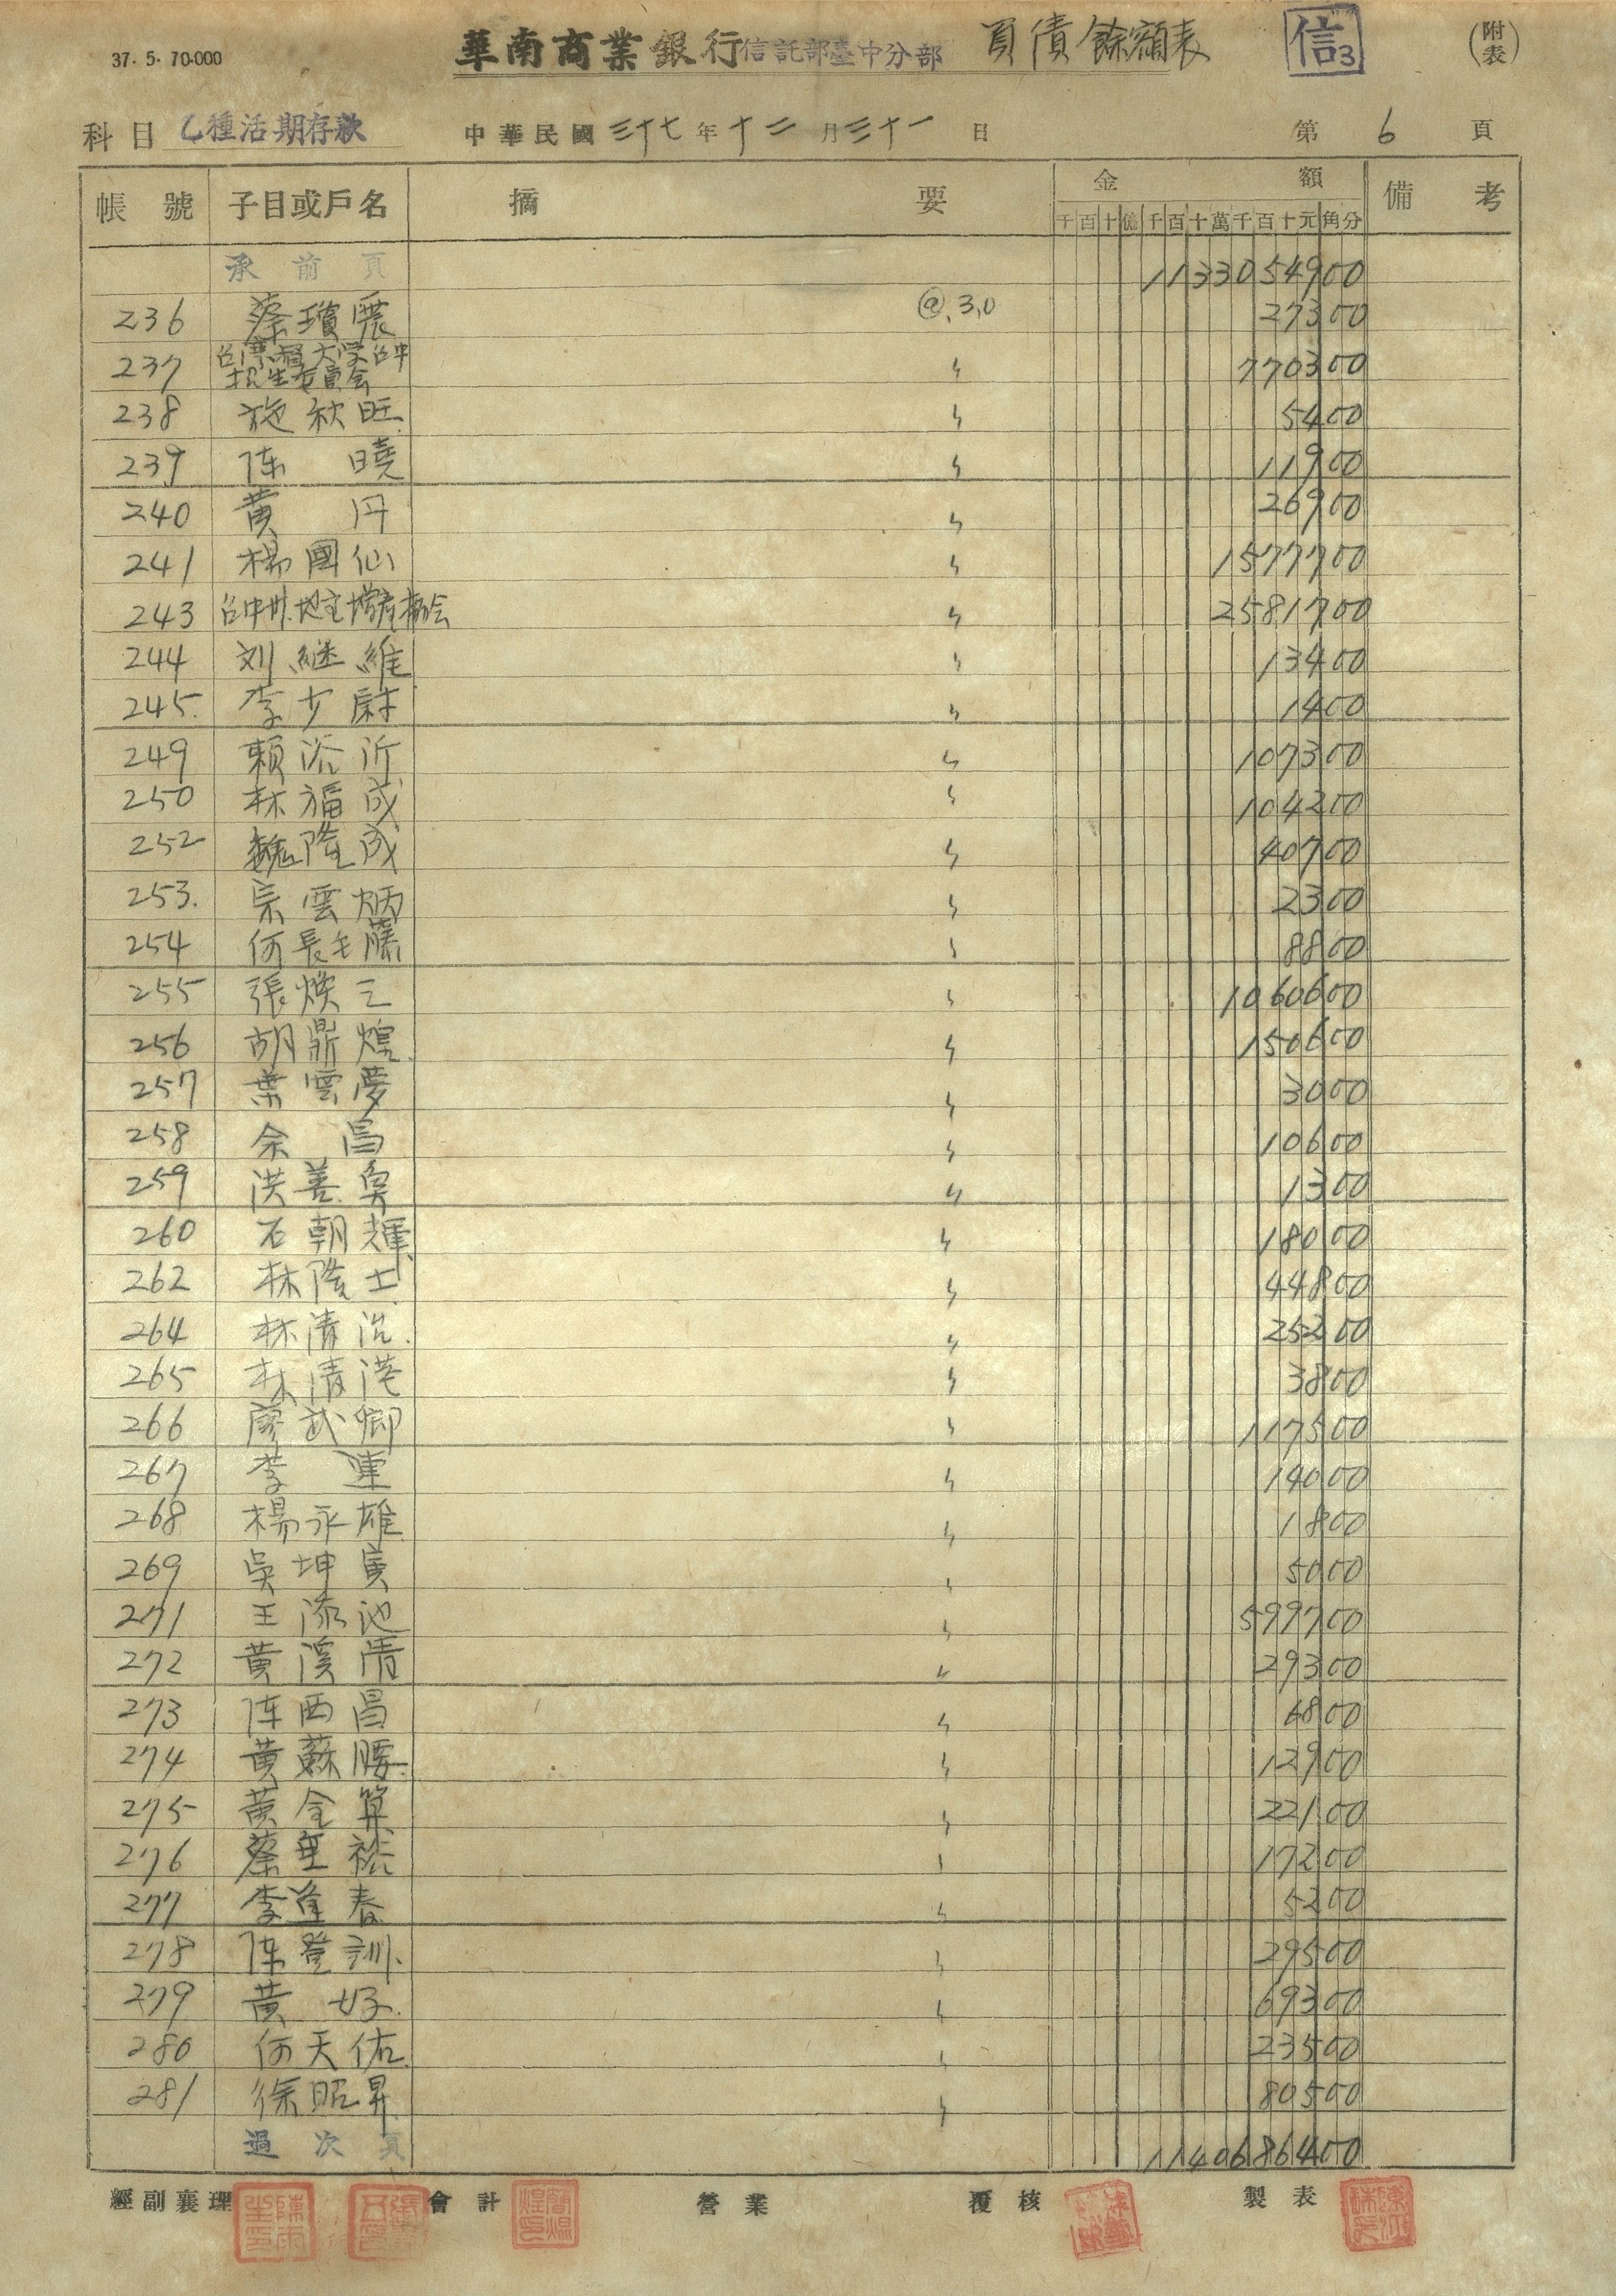 37. 5. 70.000
華南商業銀行信託部臺中分部 負債餘額表 信3 (附表)
科目 乙種活期存款 中華民國三十七年十二月三十一日 第6頁
帳號 子目或戶名 摘要 金額 備考
千百十億千百十萬千百十元角分
承前頁 1133054900
236 蔡瓊震 @.3.0 27300
237 招生委員会 〃 770300
238 施秋旺 〃 5400
239 陈曉 〃 11900
240 黄円 〃 26900
241 楊國仙 〃 1577700
243 台中州地主增產協会 〃 2581700
244 刘継維 〃 13400
245. 李少尉 〃 1400
249 賴浴沂 〃 107300
250 林福成 〃 104200
252 魏隆成 〃 40700
253. 宗雲炳 〃 2300
254 何長毛藤 〃 8800
255 張煥三 〃 1060600
256 胡鼎煌 〃 150600
257 葉雲夢 〃 3000
258 余昌 〃 10600
259 洪善 〃 1300
260 石朝輝 〃 18000
262 林隆士 〃 44800
264 林清 〃 25200
265 林清港 〃 3800
266 廖武卿 〃 117500
267 李連 〃 14000
268 楊永雄 〃 1800
269 吳坤寅 〃 5000
271 王添池 〃 599700
272 黄溪清 〃 29300
273 陈西昌 〃 6800
274 黄蘇腰 〃 12900
275 黄金算 〃 22100
276 蔡裕 〃 17200
277 李逢春 〃 5200
278 陈登訓 〃 29500
279 黄好 〃 69300
280 何天佑 〃 23500
281 徐昭昇 〃 80500
過次頁 1140686400
經副襄理 會計 營業 覆核 製表